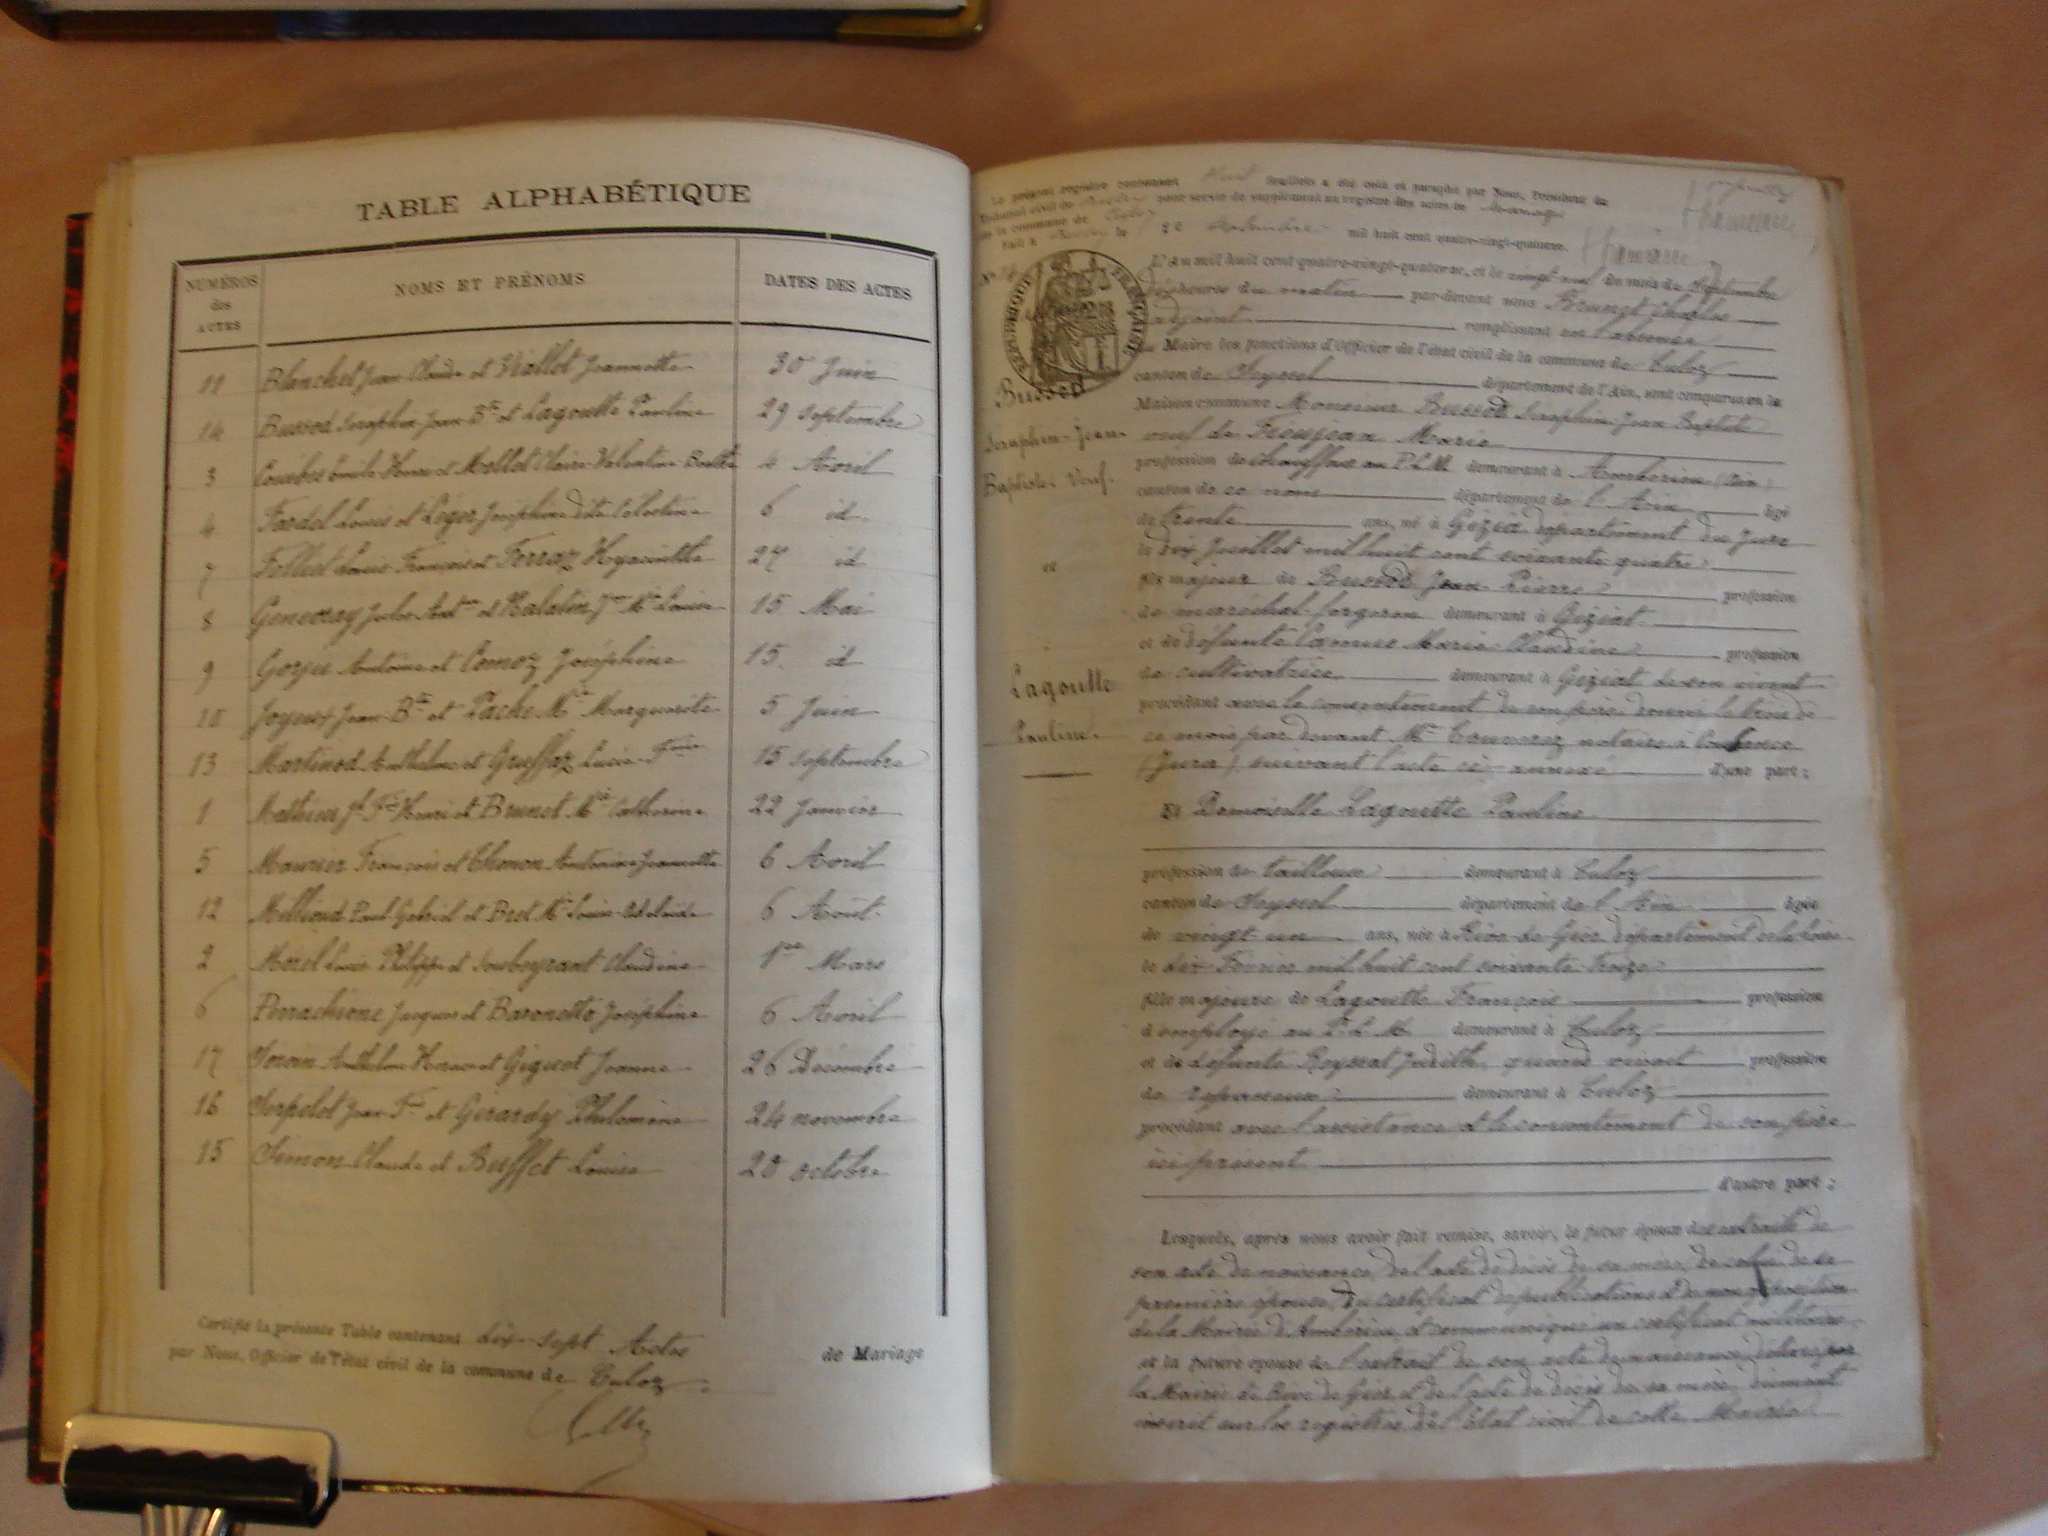 TABLE ALPHABÉTIQUE
NUMÉROS des ACTES
NOMS ET PRÉNOMS
DATES DES ACTES
11 Blanchet Jean Claude et Viallet Jeannette 30 Juin
14 Bussod Séraphin Jean Bte et Lagoutte Pauline 29 Septembre
3 Émile et Mollet Claire Valentine 4 Avril
4 Fardel Louis et Léger Joséphine dite Célestine 6 id
7 Louis François et Ferraz Hyacinthe 27 id
8 Jules et Louise 15 Mai
9 Gorju Antoine et Comoz Joséphine 15 id
10 Joyeux Jean Bte et Pache Mie Marguerite 5 Juin
13 Martinod Anthelme et Gruffaz Lucie 15 Septembre
1 Mathieu Henri et Brunet Mie Catherine 22 Janvier
5 Maurier François et Antonine Jeannette 6 Avril
12 Milliond Paul Gabriel et Bret Mie Louise Adélaïde 6 Août
2 Morel Louis Philippe et Soubeyrant Claudine 1er Mars
6 Perrachione Jacques et Baronetto Joséphine 6 Avril
17 Anthelme et Giguet Jeanne 26 Décembre
16 Serpolet Jean et Girardy Philomène 24 novembre
15 Simon Claude et Buffet Louise 20 octobre
Certifié la présente Table contenant dix-sept Actes de Mariage
par Nous, Officier de l'état civil de la commune de Culoz
Le présent registre contenant huit feuillets a été coté et paraphé par Nous, Président du
Tribunal civil de Belley pour servir de supplément au registre des actes de Mariage
de la commune de Culoz
Fait à Belley le mil huit cent quatre-vingt-quatorze.
RÉPUBLIQUE FRANÇAISE
Bussod
Séraphin-Jean-
Baptiste Veuf.
et
Lagoutte
Pauline.
L'An mil huit cent quatre-vingt-quatorze, et le vingt neuf du mois de Septembre
heures du matin par-devant nous Brunet Charles
adjoint remplissant en l'absence
du Maire les fonctions d'Officier de l'état civil de la commune de Culoz
canton de Seyssel département de l'Ain, sont comparus en la
Maison commune Monsieur Bussod Séraphin Jean Baptiste
veuf de Froujean Marie
profession de chauffeur au P.L.M. demeurant à Ambérieu (Ain)
canton de ce nom département de l'Ain âgé
de trente ans, né à Gizia département du Jura
le dix Juillet mil huit cent soixante quatre
fils majeur de Bussod Jean Pierre profession
de maréchal-forgeron demeurant à Giziat
et de défunte Camus Marie Claudine profession
de cultivatrice demeurant à Giziat de son vivant
procédant avec le consentement de son père donné le trois de
ce mois par devant Me notaire à Cousance
(Jura) suivant l'acte ci-annexé d'une part ;
Et Demoiselle Lagoutte Pauline
profession de tailleuse demeurant à Culoz
canton de Seyssel département de l'Ain âgée
de vingt-un ans, née à Rive-de-Gier département de la Loire
le dix Février mil huit cent soixante-treize
fille majeure de Lagoutte François profession
d'employé au P.L.M. demeurant à Culoz
et de défunte Reyssat Judith, quand vivait profession
de demeurant à Culoz
procédant avec l'assistance et le consentement de son père
ici présent
d'autre part ;
Lesquels, après nous avoir fait remise, savoir, le futur époux des extraits de
son acte de naissance, de l'acte de décès de sa mère, de celui de sa
première épouse, du certificat de publications et de non opposition
de la Mairie d'Ambérieu, et communiqué un certificat militaire,
et la future épouse de l'extrait de son acte de naissance, délivré par
la Mairie de Rive de Gier et de l'acte de décès de sa mère, dûment
inscrit sur les registres de l'État civil de cette Mairie